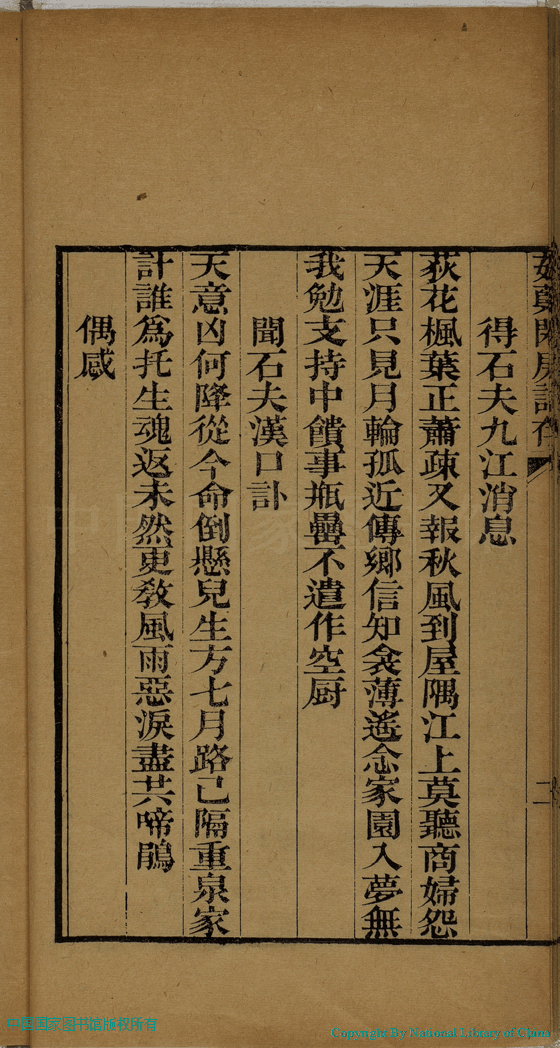 得石夫九江消息
荻花楓葉正蕭疎又報秋風到屋隅江上莫聽商婦怨
天涯只見月輪孤近傳鄉信知衾薄遙念家園入夢無
我勉支持中饋事瓶罍不遣作空厨
聞石夫漢口訃
天意凶何降從今命倒懸兒生方七月路已隔重泉家
計誰爲托生魂返未然更敎風雨惡淚盡共啼鵑
偶感
中国国家图书馆版权所有
Copyright By National Library of China